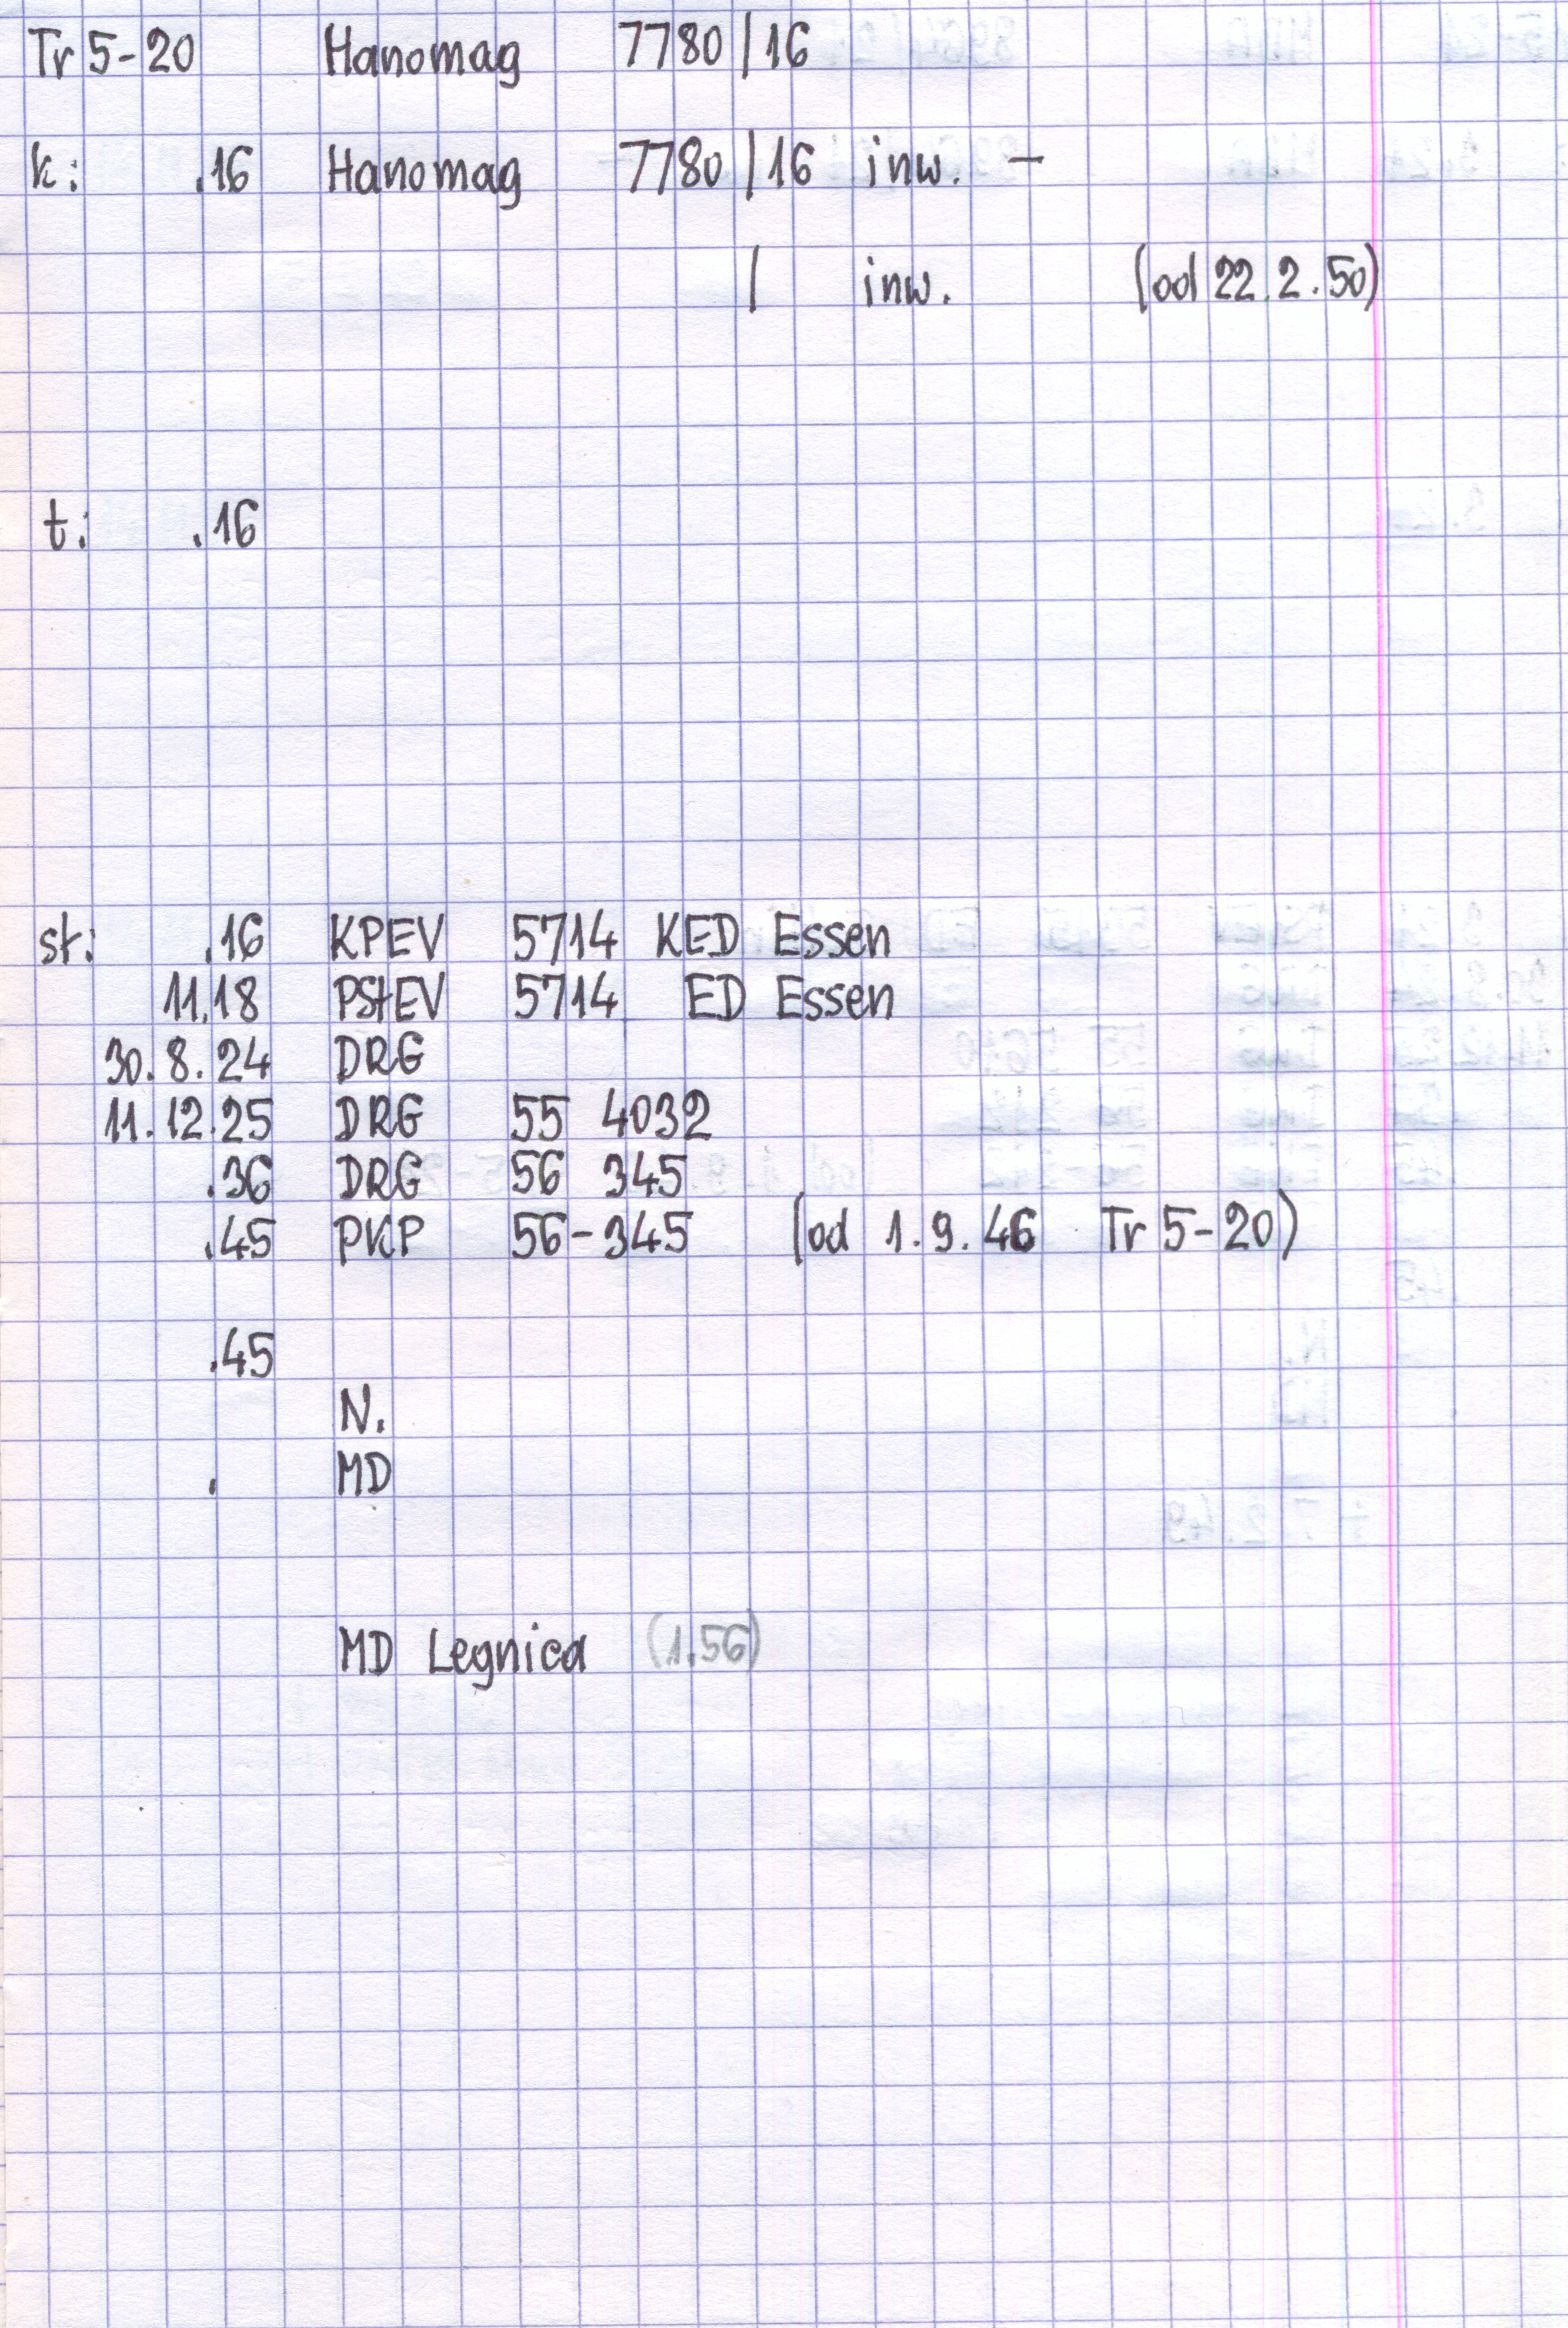 Tr 5-20 Hanomag 7780/16
k: .16 Hanomag 7780/16 inw. -
/ inw. (od 22.2.50)
t: .16
st: .16 KPEV 5714 KED Essen
11.18 PStEV 5714 ED Essen
30.8.24 DRG
11.12.25 DRG 55 4032
.36 DRG 56 345
.45 PKP 56-345 (od 1.9.46 Tr 5-20)
.45
N.
. MD
MD Legnica (1.56)